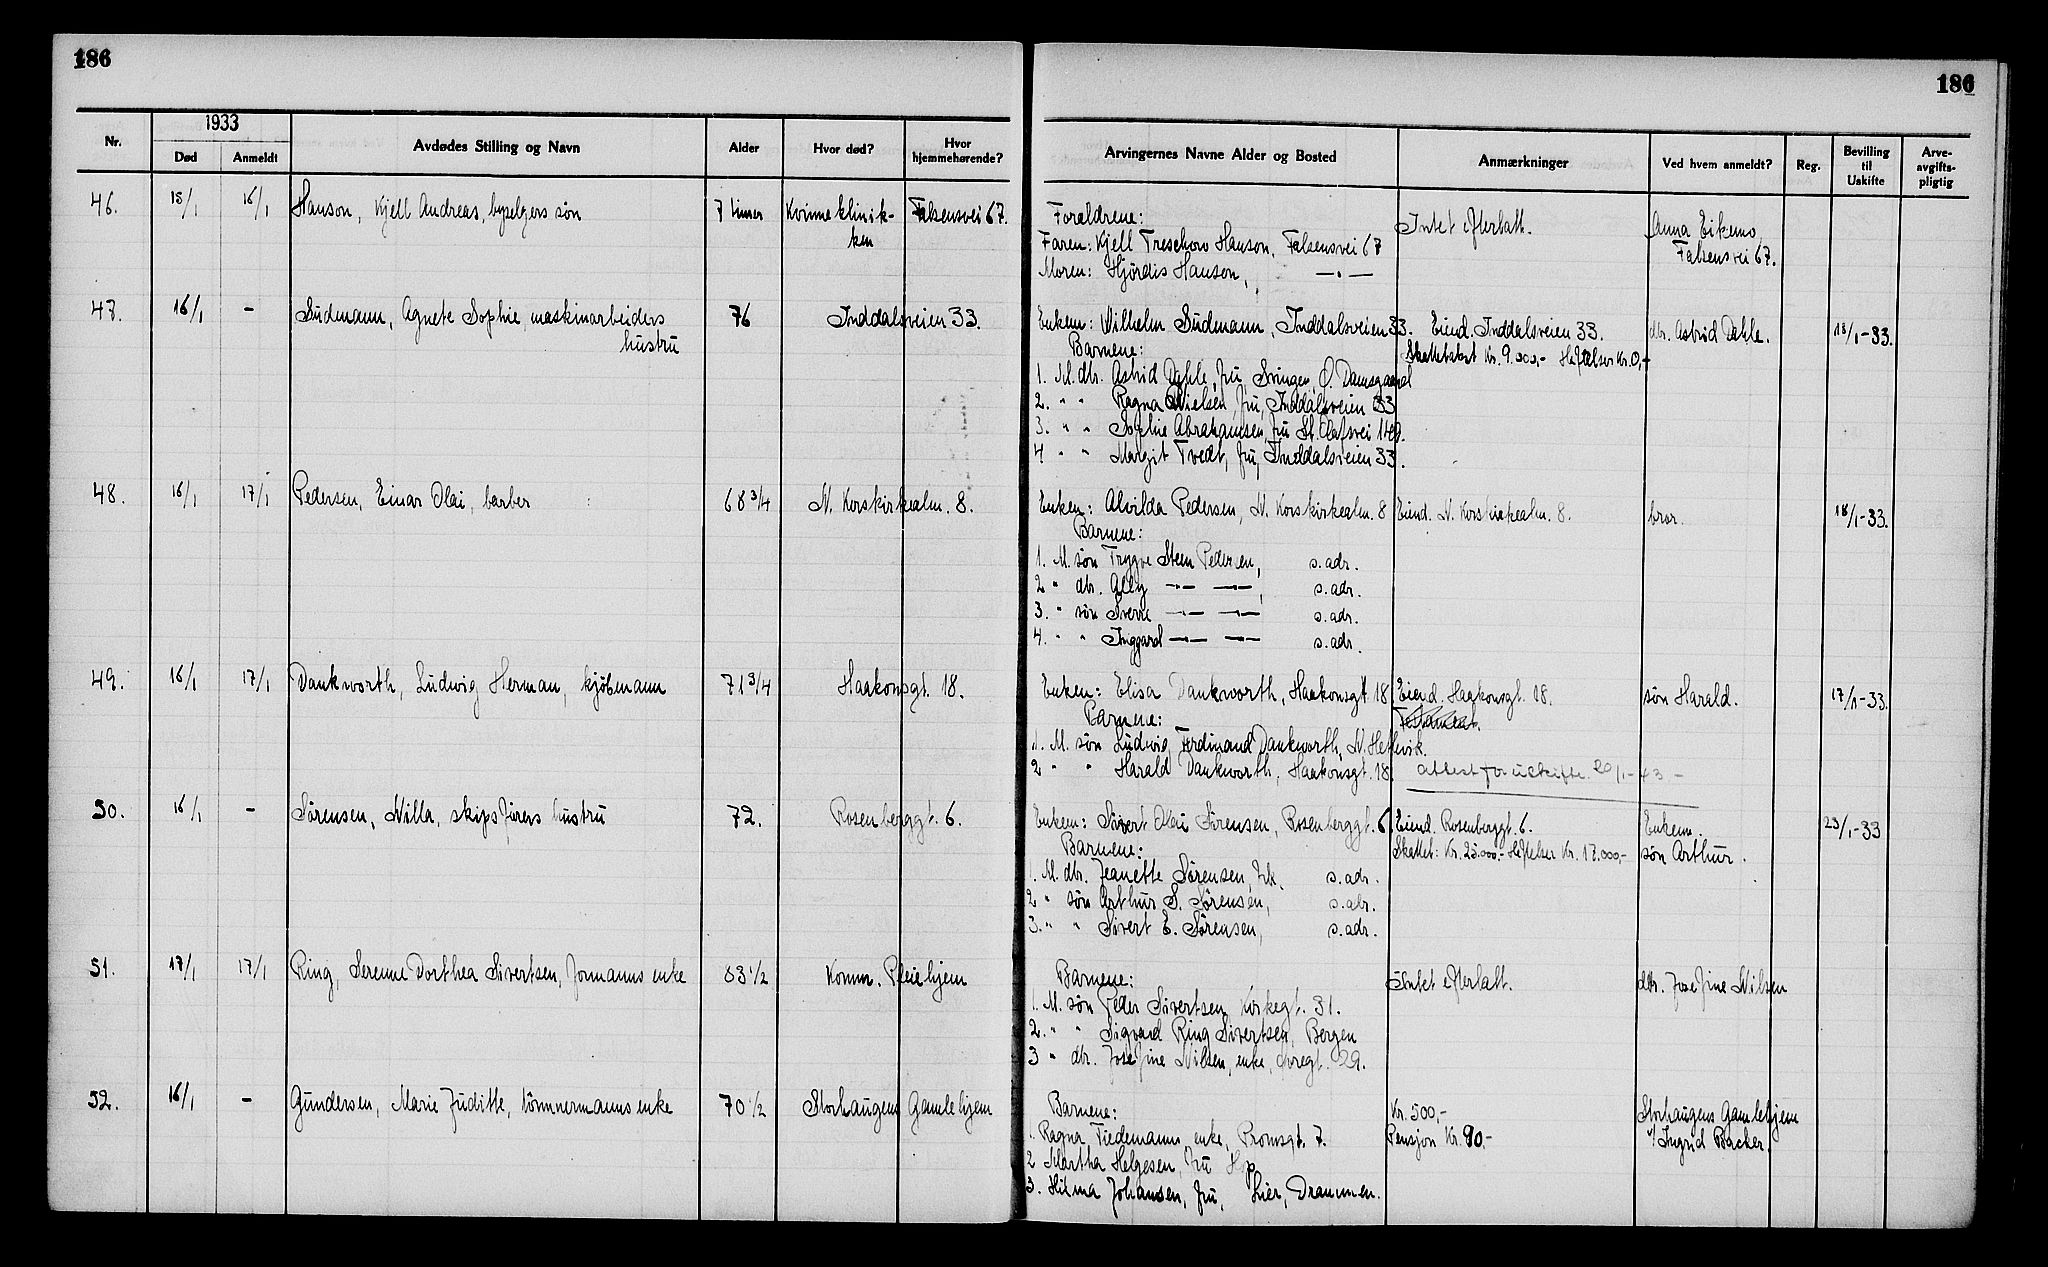 186
186
1933
Nr.
Død
Anmeldt
Avdødes Stilling og Navn
Alder
Hvor død?
Hvor hjemmehørende?
Arvingernes Navne Alder og Bosted
Anmærkninger
Ved hvem anmeldt?
Reg.
Bevilling til Uskifte
Arve-avgifts-pligtig
46. 15/1 16/1 Hanson, Kjell Andreas, byselgers søn 7 timer Kvinneklinik- Falsensvei 67.
ken
Foreldrene: Intet efterlatt. Anna Eikemo,
Faren: Kjell Treschow Hanson, Falsensvei 67 Falsensvei 67.
Moren: Hjördis Hanson, — " —
47. 16/1 - Sudmann, Agnete Sophie, maskinarbeiders 76 Inddalsveien 33.
hustru
Enkem: Wilhelm Sudmann, Inddalsveien 33. Eiend. Inddalsveien 33. dtr. Astrid Dahle. 18/1-33.
Barnene: Skattetakst Kr. 9.000,- Heftelser Kr. 0,-
1. M. dtr. Astrid Dahle, fru, Svingen, Ø. Damsgaard
2. " " Ragna Nielsen, fru, Inddalsveien 33
3. " " Sophie Abrahamsen, fru St. Olafsvei 149.
4 " " Margit Tvedt, fru, Inddalsveien 33.
48. 16/1 17/1 Pedersen, Einar Olai, barber 68 3/4 N. Korskirkealm. 8.
Enken: Alvilda Pedersen, N. Korskirkealm. 8 Eiend. N. Korskirkealm. 8. bror. 18/1-33.
Barnene:
1. M. søn Trygve Steen Pedersen, s. adr.
2 " dtr. — " — — " —, s. adr.
3. " søn Sverre — " — — " — s. adr.
4. " " Inggard — " — — " — s. adr.
49. 16/1 17/1 Dankworth, Ludwig Herman, kjøbmann 71 3/4 Haakonsgt. 18.
Enken: Elisa Dankworth, Haakonsgt 18 Eiend. Haakonsgt. 18. søn Harald. 17/1-33.
Barnene: Testament.
1. M. søn Ludwig Ferdinand Dankworth, N. Hetlevik.
2 " " Harald Dankworth, Haakonsgt. 18. attest for uskifte 20/1-43 -
50. 16/1 - Sørensen, Nilla, skipsførers hustru 72. Rosenberggt. 6.
Enkem: Sivert Olai Sørensen, Rosenberggt. 6. Eiend. Rosenberggt. 6. Enkem. 23/1-33
Barnene: Skattet: Kr. 25.000,- Heftelser Kr. 17.000,- søn Arthur.
1. M. dtr. Jeanette Sørensen, frk. s. adr.
2 " søn Arthur S. Sørensen, s. adr.
3. " " Sivert E. Sørensen, s. adr.
51. 17/1 17/1 Ring, Serenne Dorthea Sivertsen, formanns enke 83 1/2 Komm. Pleiehjem
Barnene: Intet efterlatt. dtr. Josefine Nilsen
1. M. søn Peder Sivertsen, Kirkegt. 31.
2. " " Sigvard Ring Sivertsen, Bergen
3 " dtr. Josefine Nilsen, enke, Øvregt. 29.
52. 16/1 - Gundersen, Marie Juditte, tømmermanns enke 70 1/2 Storhaugens Gamlehjem
Barnene: Kr. 500,- Storhaugens Gamlehjem
1. Ragna Tiedemann, enke, Promsgt. 7. Pensjon Kr. 90,- v/ Ingrid Backer.
2 Martha Helgesen, fru Hop
3. Hilma Johansen, fru, Lier, Drammen.